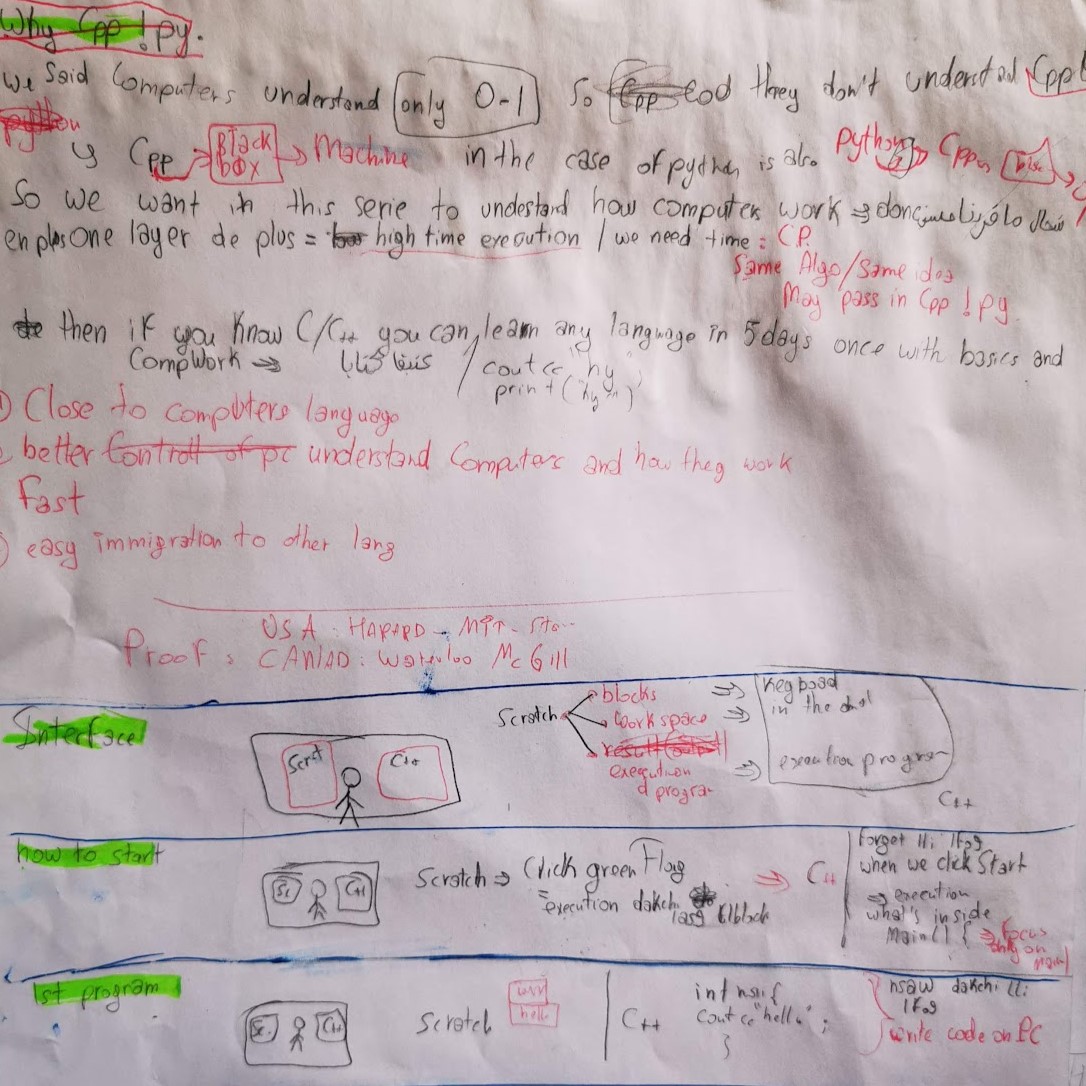 Why Cpp ! py.
we said Computers understand only 0-1 So Cpp cod they don't understad Cpp
python
Cpp → Black box → Machine in the case of python is also python → Cpp
So we want in this serie to undestard how computer work ⇒ donc
en plus One layer de plus = high time exeoution / we need time : CP.
Same Algo/Same idea
May pass in Cpp ! py.
then if you know C/C++ you can learn any language in 5 days once with basics and
CompWork ⇒ / cout cc "hy"
print("hy")
Close to computers language
better Controll of pc understand Computers and how they work
Fast
easy immigration to other lang
Proof : USA : HARARD - MIT -
CANAD : Waterloo McGill
Interface
Scrat C++
Scratch
blocks ⇒ Keyboad
workspace ⇒ in the
result (output)
execution d progra ⇒ execution program
C++
how to start
Sc C++
Scratch ⇒ Click green Flag
execution dakchi
⇒ C++
forget lli lfo9
when we click Start
⇒ execution
what's inside
Main() { ⇒ focus only on main
1st program
Sc. C++
Scratch
hello
C++
cout cc "hello" ;
}
nsaw dakchi lli lfo9
write code on PC